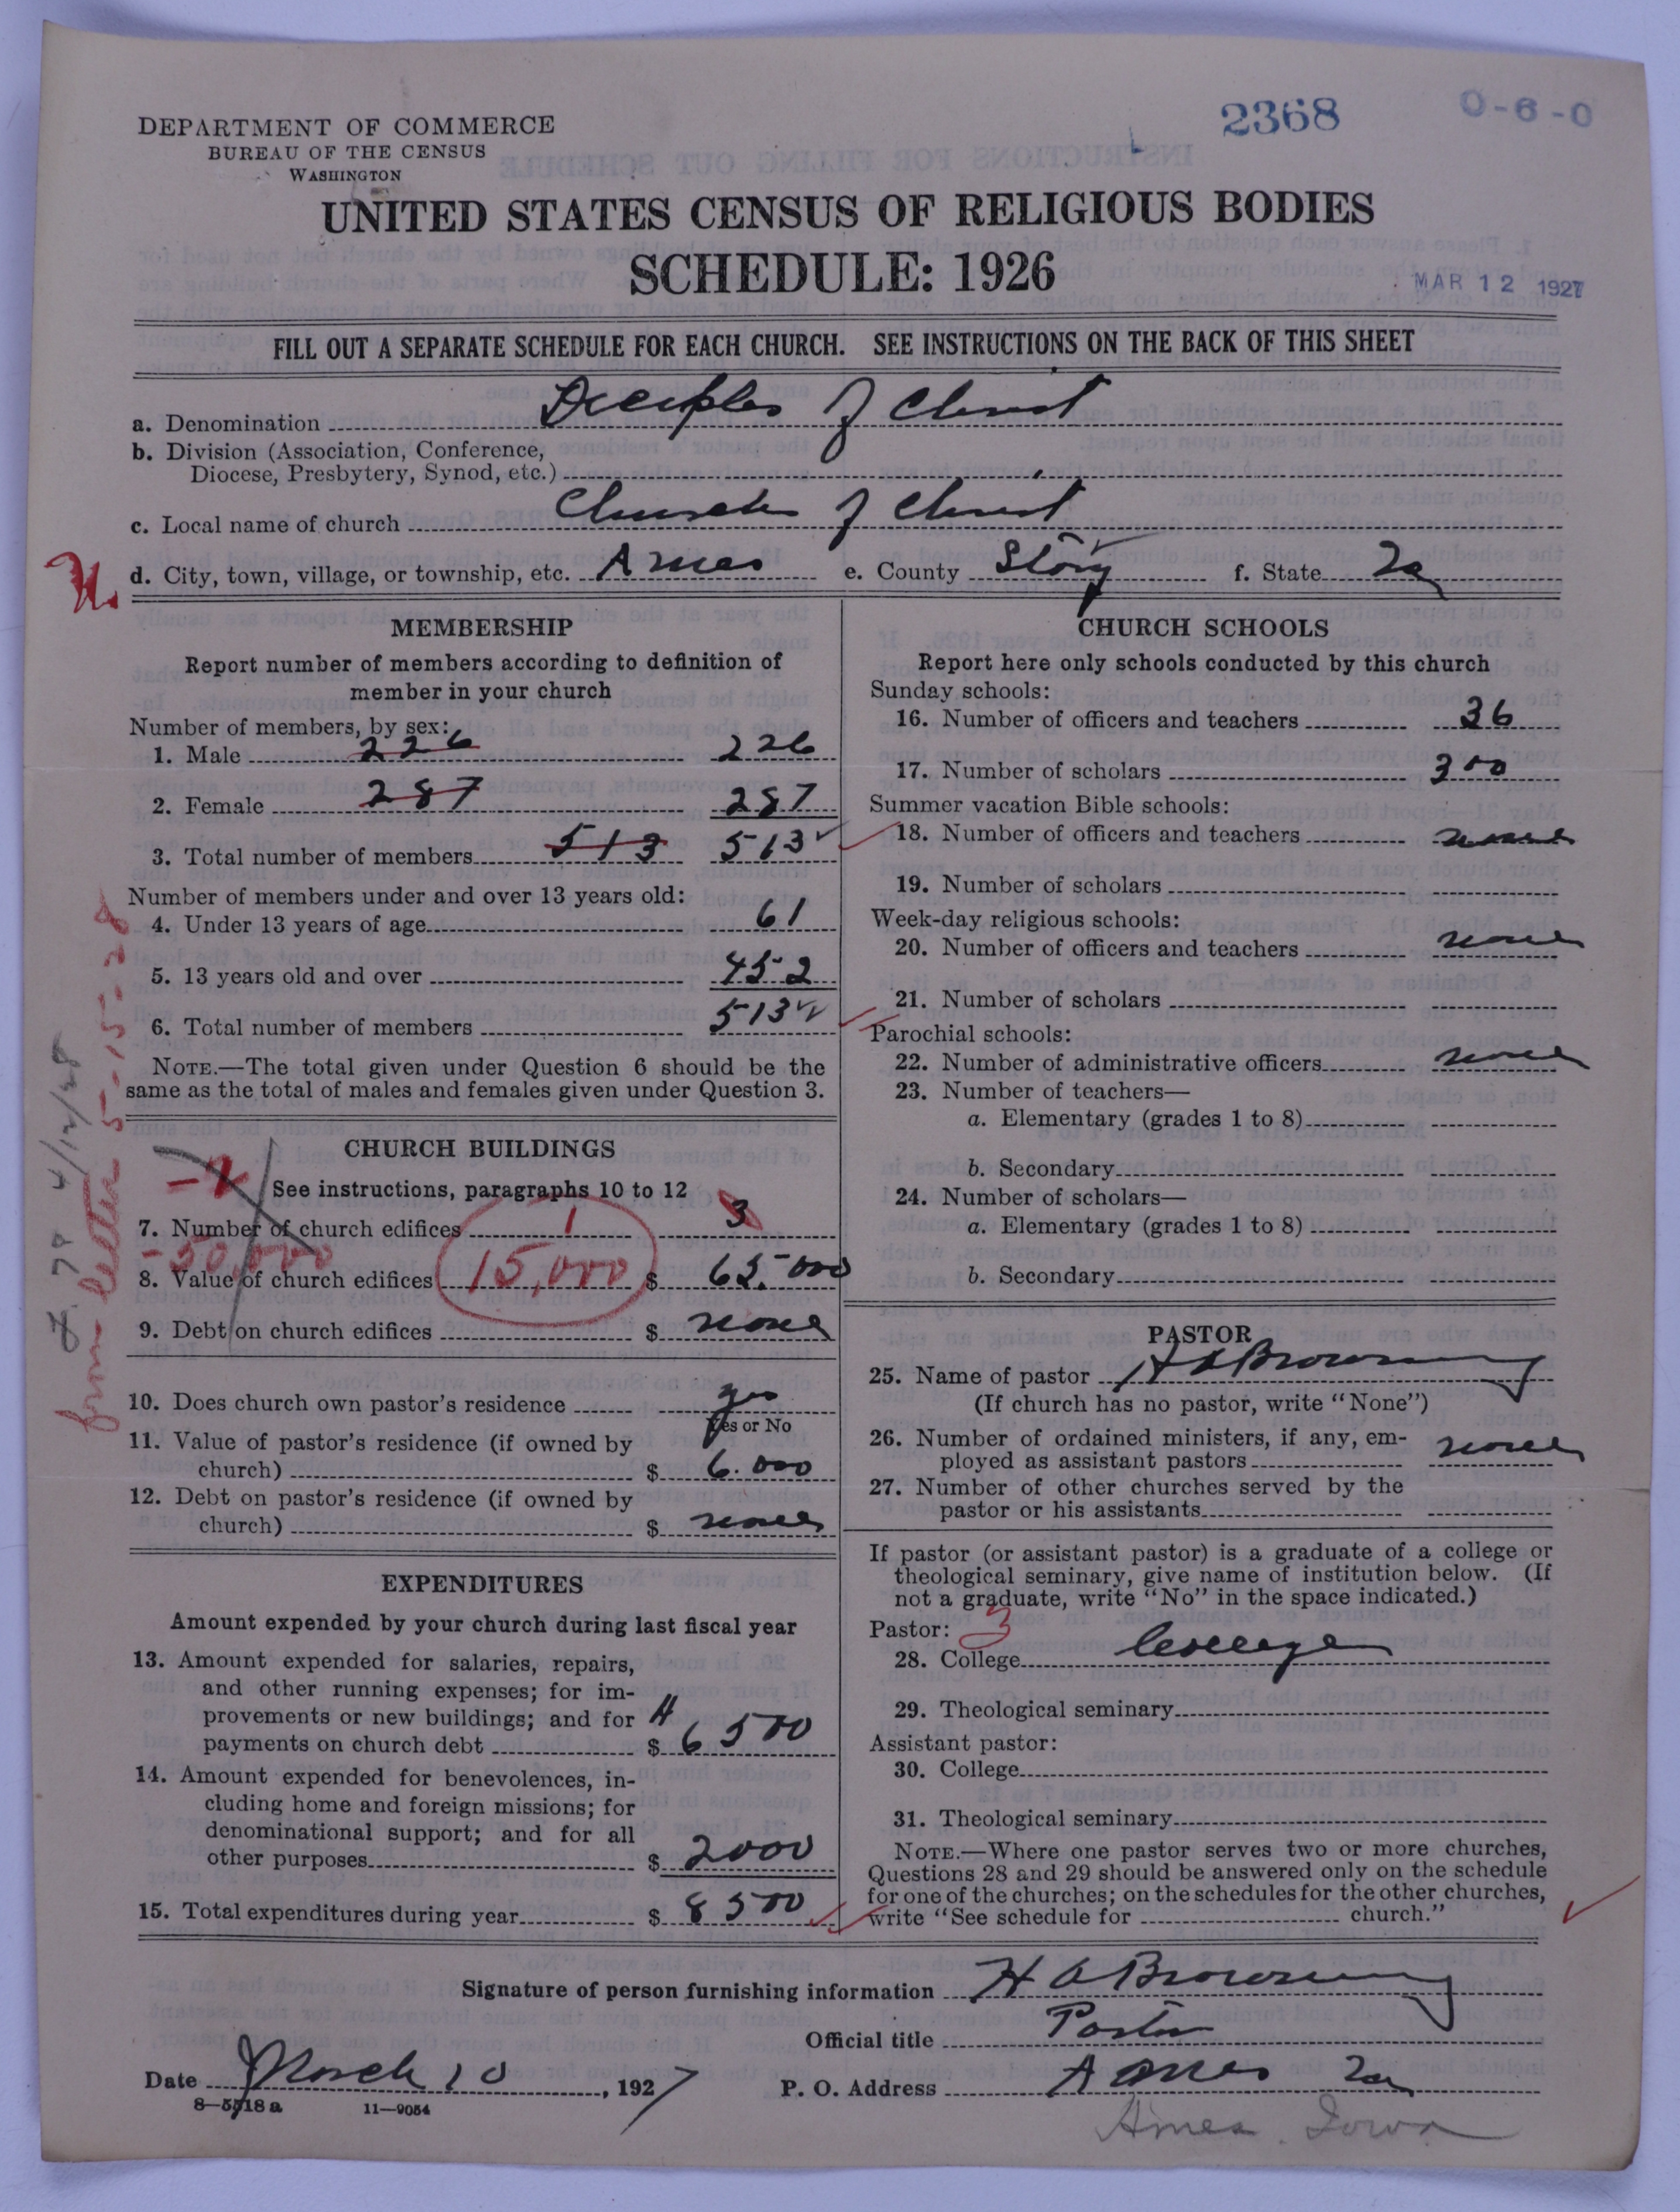 DEPARTMENT OF COMMERCE
BUREAU OF THE CENSUS
WASHINGTON
2368
0-6-0
UNITED STATES CENSUS OF RELIGIOUS BODIES
SCHEDULE: 1926
MAR 12 1927
FILL OUT A SEPARATE SCHEDULE FOR EACH CHURCH. SEE INSTRUCTIONS ON THE BACK OF THIS SHEET
a. Denomination Deciples of Christ
b. Division (Association, Conference,
Diocese, Presbytery, Synod, etc.)
c. Local name of church Church of Christ
d. City, town, village, or township, etc. Ames e. County Story f. State Ia
MEMBERSHIP
Report number of members according to definition of
member in your church
Number of members, by sex:
1. Male 226 226
2. Female 287 287
3. Total number of members 513 513
Number of members under and over 13 years old:
4. Under 13 years of age 61
5. 13 years old and over 452
6. Total number of members 513
NOTE.—The total given under Question 6 should be the
same as the total of males and females given under Question 3.
from letter 5-15-28
4/12/28
CHURCH BUILDINGS
See instructions, paragraphs 10 to 12
7. Number of church edifices 1 3
-50,000
8. Value of church edifices 15,000 $ 65.000
9. Debt on church edifices $ none
10. Does church own pastor's residence yes
Yes or No
11. Value of pastor's residence (if owned by
church) $ 6.000
12. Debt on pastor's residence (if owned by
church) $ none
EXPENDITURES
Amount expended by your church during last fiscal year
13. Amount expended for salaries, repairs,
and other running expenses; for im-
provements or new buildings; and for
payments on church debt $ 6500
14. Amount expended for benevolences, in-
cluding home and foreign missions; for
denominational support; and for all
other purposes $ 2000
15. Total expenditures during year $ 8500
CHURCH SCHOOLS
Report here only schools conducted by this church
Sunday schools:
16. Number of officers and teachers 36
17. Number of scholars 300
Summer vacation Bible schools:
18. Number of officers and teachers none
19. Number of scholars
Week-day religious schools:
20. Number of officers and teachers none
21. Number of scholars
Parochial schools:
22. Number of administrative officers none
23. Number of teachers—
a. Elementary (grades 1 to 8)
b. Secondary
24. Number of scholars—
a. Elementary (grades 1 to 8)
b. Secondary
PASTOR
25. Name of pastor H A Browning
(If church has no pastor, write "None")
26. Number of ordained ministers, if any, em-
ployed as assistant pastors none
27. Number of other churches served by the
pastor or his assistants
If pastor (or assistant pastor) is a graduate of a college or
theological seminary, give name of institution below. (If
not a graduate, write "No" in the space indicated.)
Pastor: 3
28. College
29. Theological seminary
Assistant pastor:
30. College
31. Theological seminary
NOTE.—Where one pastor serves two or more churches,
Questions 28 and 29 should be answered only on the schedule
for one of the churches; on the schedules for the other churches,
write "See schedule for church."
Signature of person furnishing information H A Browning
Official title Pastor
Date March 10, 1927 P. O. Address Ames Ia
8—5518a 11—9054
Ames. Iowa